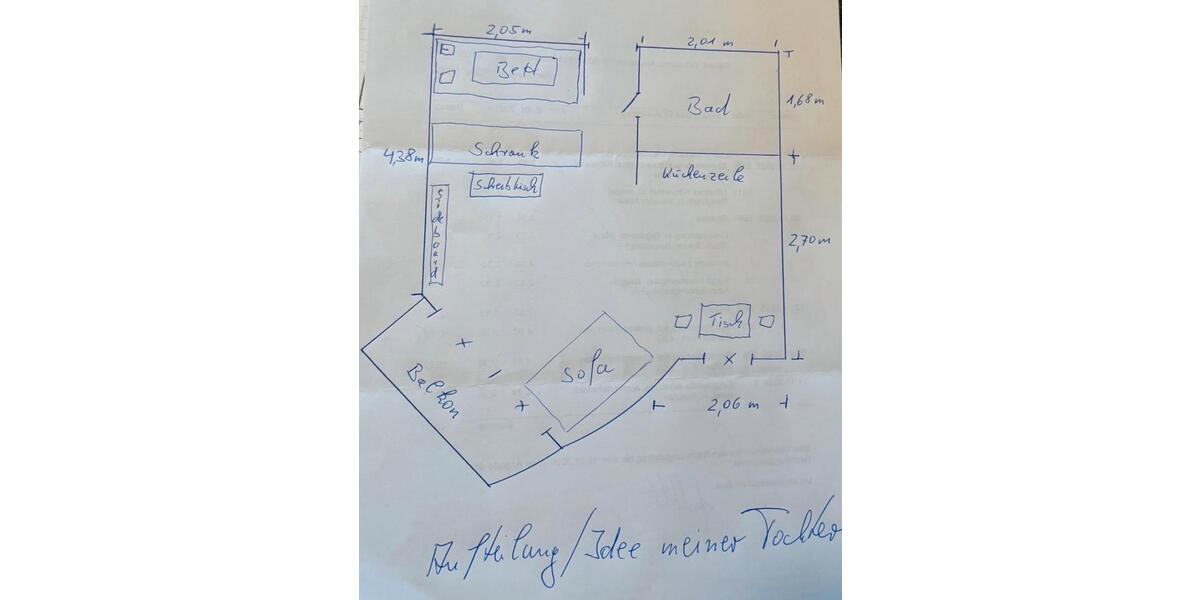 2,05m
2,01 m
Bett
Bad
1,68m
4,38m
Schrank
Küchenzeile
Schreibtisch
Sideboard
2,70m
Tisch
Sofa
Balkon
2,06 m
Aufteilung/Idee meiner Tochter